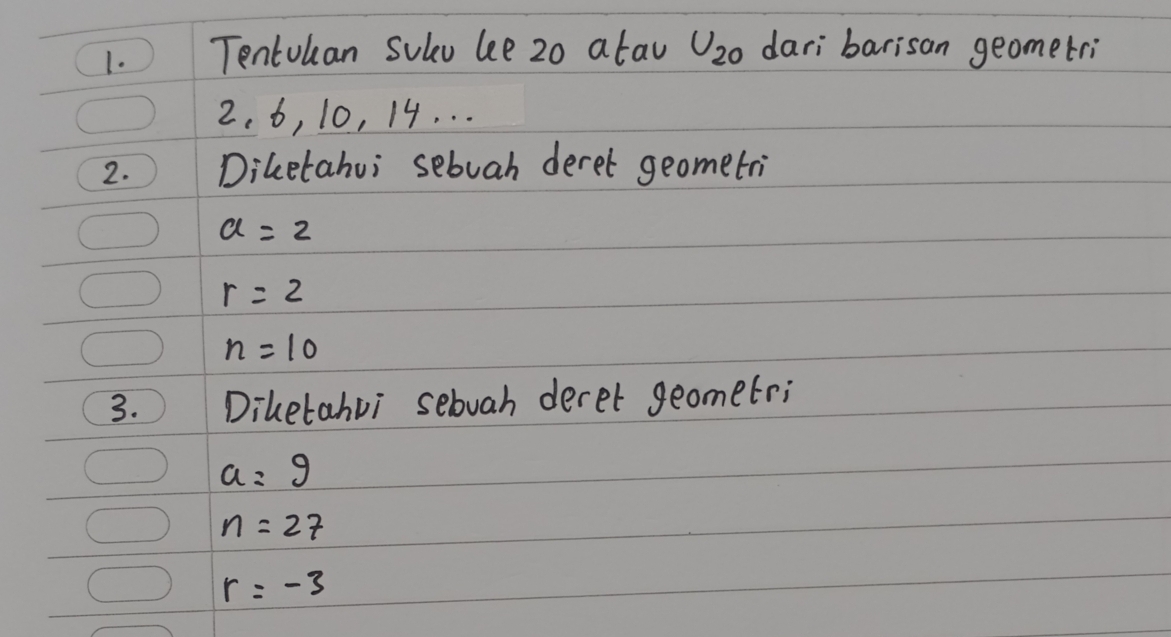 1. Tentukan suku ke 20 atau U20 dari barisan geometri
2, 6, 10, 14...
2. Diketahui sebuah deret geometri
a = 2
r = 2
n = 10
3. Diketahui sebuah deret geometri
a = 9
n = 27
r = -3